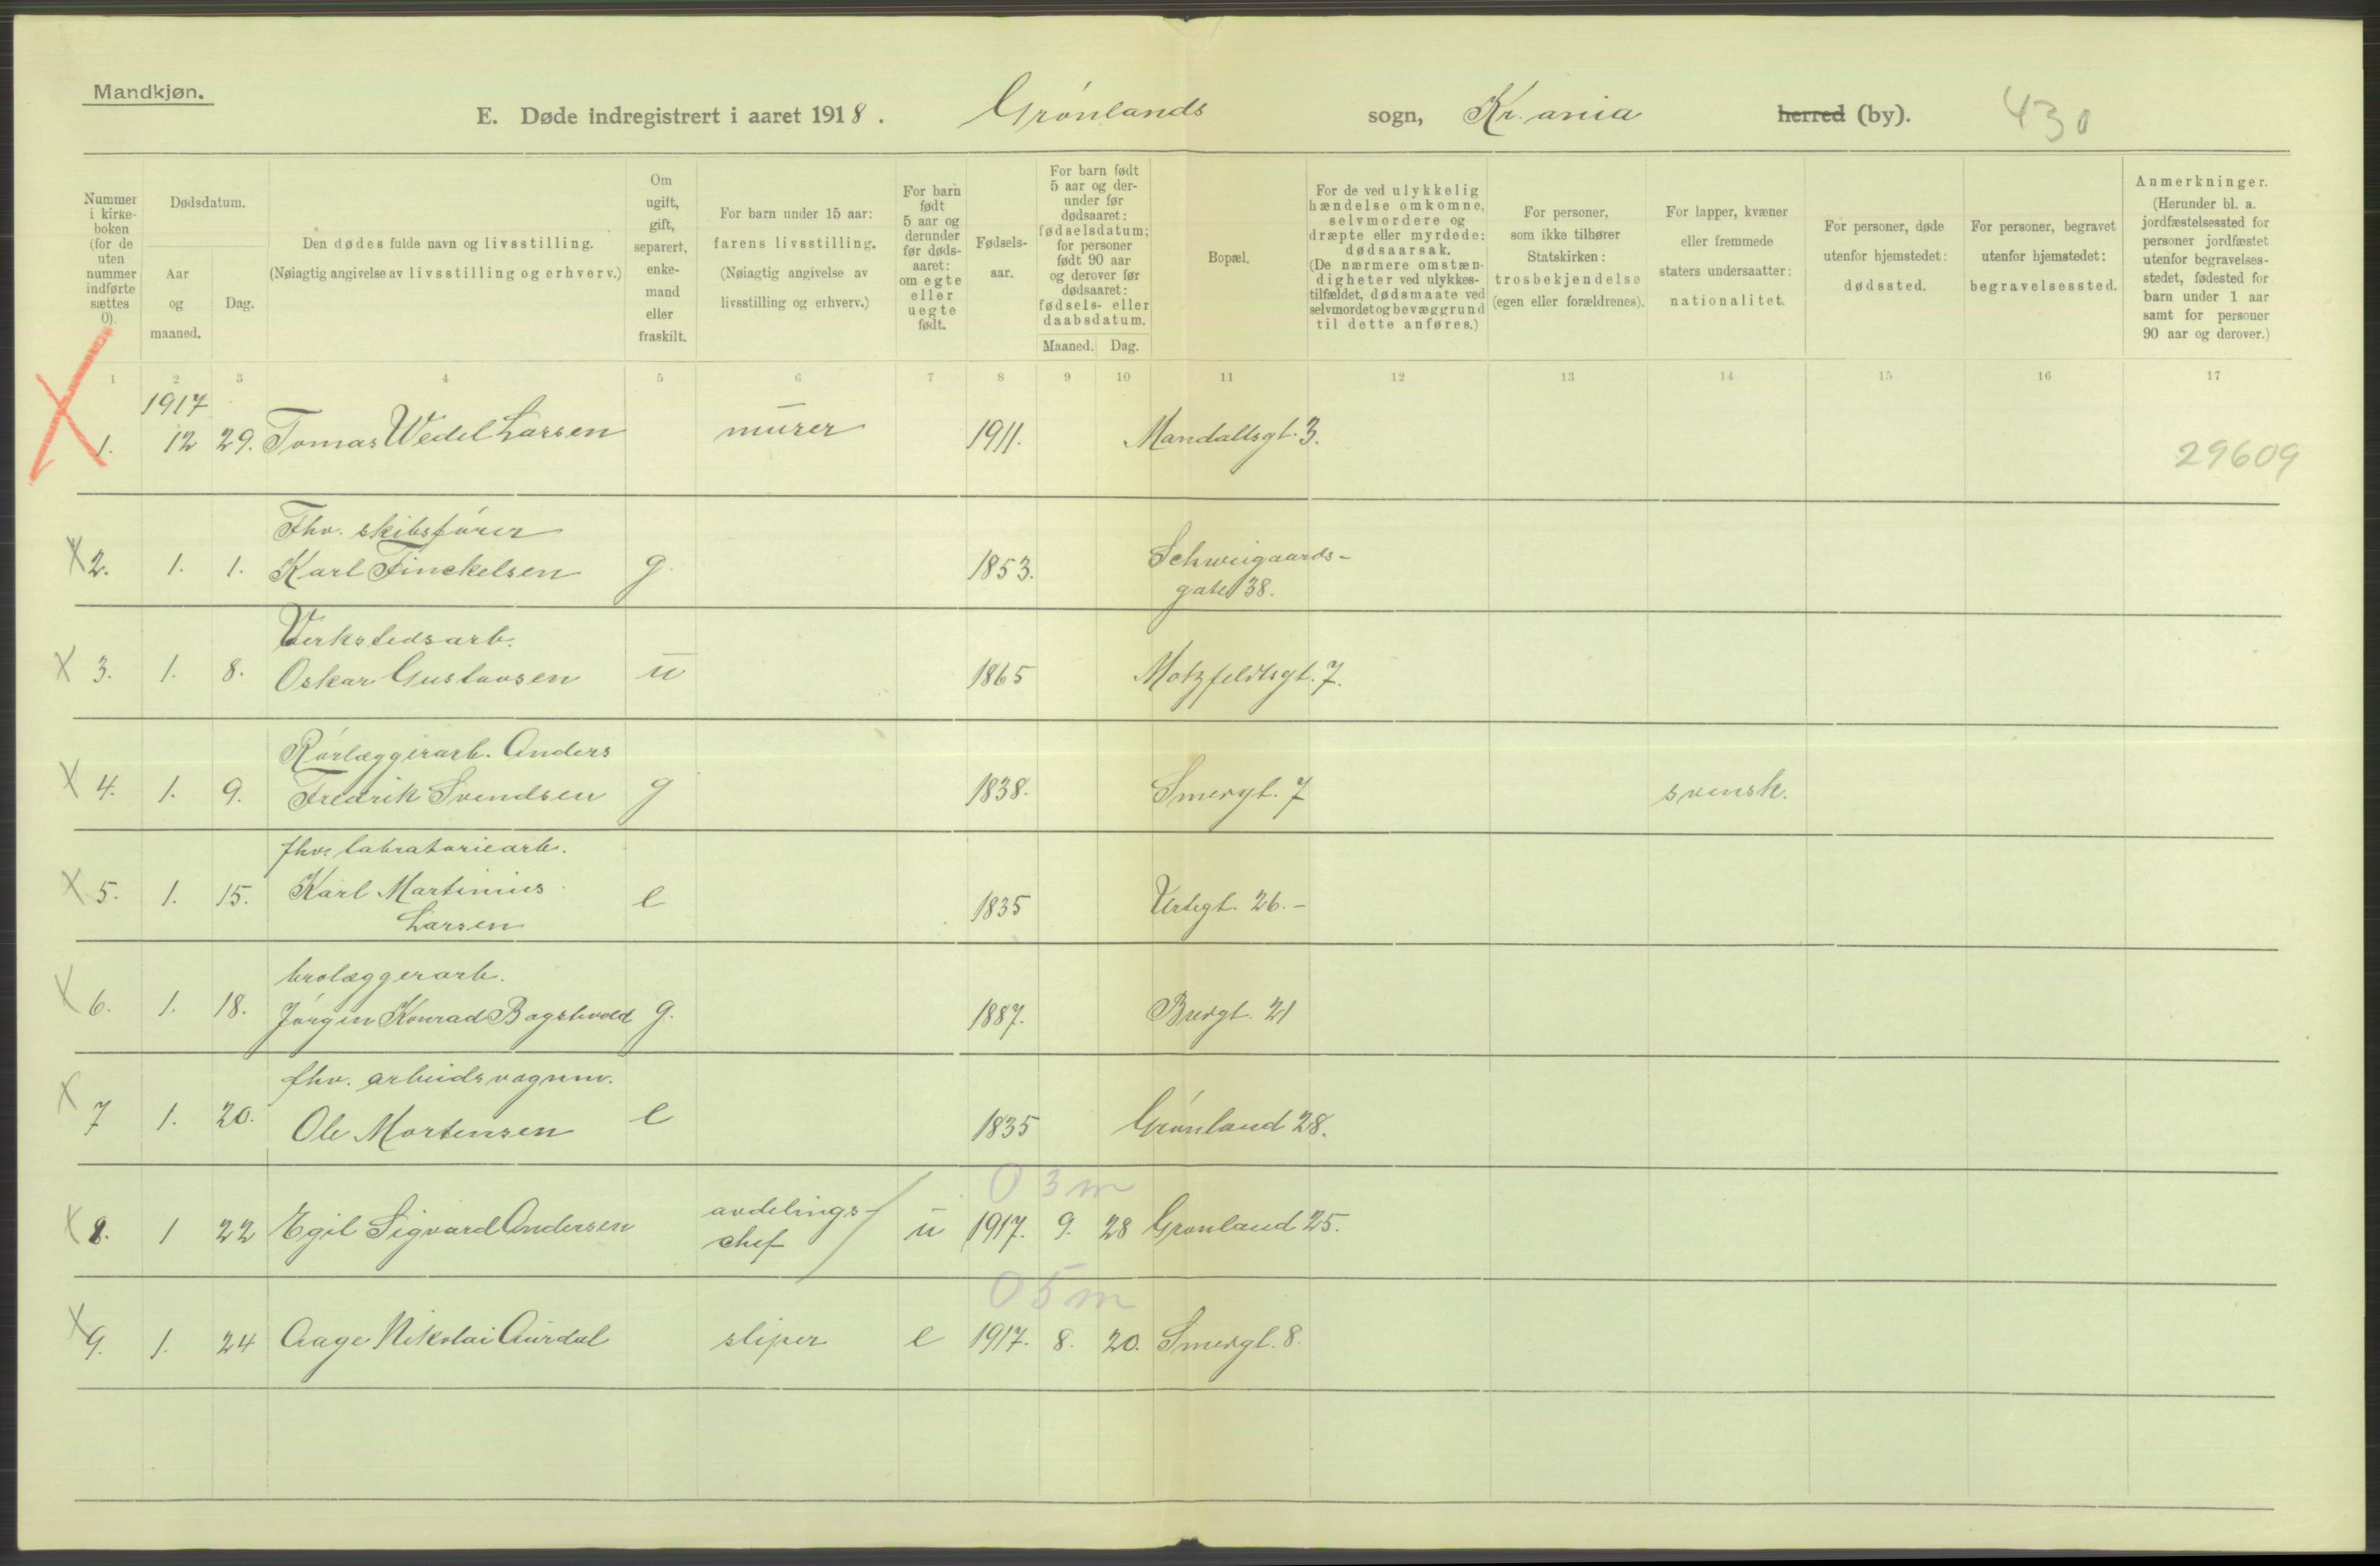 Mandkjøn.
E. Døde indregistrert i aaret 1918. Grønlands sogn, Kr.ania herred (by). 430
Nummer i kirke-boken (for de uten nummer indførte sættes 0).
Dødsdatum.
Aar og maaned.
Dag.
Den dødes fulde navn og livsstilling.
(Nøiagtig angivelse av livsstilling og erhverv.)
Om ugift, gift, separert, enke-mand eller fraskilt.
For barn under 15 aar:
farens livsstilling.
(Nøiagtig angivelse av
livsstilling og erhverv.)
For barn født 5 aar og derunder før døds-aaret: om egte eller uegte født.
Fødsels-aar.
For barn født 5 aar og der-under før dødsaaret: fødselsdatum; for personer født 90 aar og derover før dødsaaret: fødsels- eller daabsdatum.
Maaned. Dag.
Bopæl.
For de ved ulykkelig hændelse omkomne, selvmordere og dræpte eller myrdede: dødsaarsak.
(De nærmere omstæn-digheter ved ulykkes-tilfældet, dødsmaate ved selvmordet og bevæggrund til dette anføres.)
For personer, som ikke tilhører Statskirken: trosbekjendelse (egen eller forældrenes).
For lapper, kvæner eller fremmede staters undersaatter: nationalitet.
For personer, døde utenfor hjemstedet: dødssted.
For personer, begravet utenfor hjemstedet: begravelsessted.
Anmerkninger.
(Herunder bl. a. jordfæstelsessted for personer jordfæstet utenfor begravelses-stedet, fødested for barn under 1 aar samt for personer 90 aar og derover.)
1 2 3 4 5 6 7 8 9 10 11 12 13 14 15 16 17
1917
1. 12 29. Tomas Wedel Larsen murer 1911. Mandallsgt. 3. 29609
Fhv. skibsfører
X 2. 1. 1. Karl Finckelsen g. 1853. Schweigaards-
gate 38.
Verkstedsarb.
X 3. 1. 8. Oskar Gustavsen u 1865 Motzfeldtsgt. 7.
Rørlæggerarb. Anders
X 4. 1. 9. Fredrik Svendsen g 1838. Smedgt. 7 svensk.
fhv. labratoriearb.
X 5. 1. 15. Karl Martinius e 1835 Urtegt. 26.-
Larsen
brolæggerarb.
X 6. 1. 18. Jørgen Konrad Bagstevold g. 1887. Bredgt. 21
fhv. arbeidsvognm.
X 7 1. 20. Ole Mortensen e 1835 Grønland 28.
0 3 m
X 8. 1 22 Egil Sigvard Andersen avdelings-
chef u 1917. 9. 28 Grønland 25.
0 5 m
X 9. 1. 24 Aage Nikolai Aurdal sliper e 1917. 8. 20. Smedgt. 8.